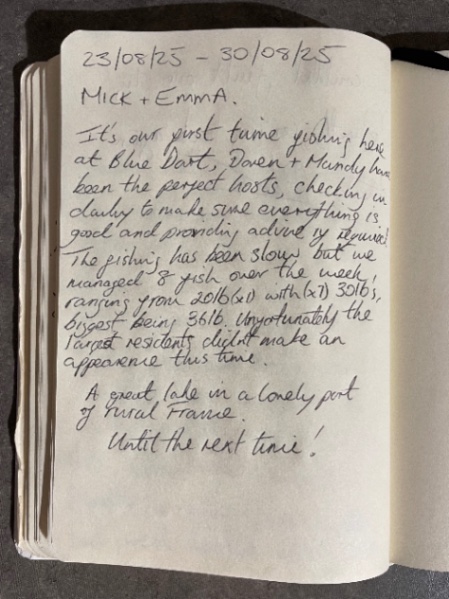 23/08/25 - 30/08/25
MICK + EMMA.
It's our first time fishing here
at Blue Dart, Daren + Mandy have
been the perfect hosts, checking in
daily to make sure everything is
good and providing advice if required.
The fishing has been slow but we
managed 8 fish over the week,
ranging from 20lb(x1) with (x7) 30lb's,
biggest being 36lb. Unfortunately the
largest residents didn't make an
appearence this time.
A great lake in a lovely part
of rural France.
Until the next time!